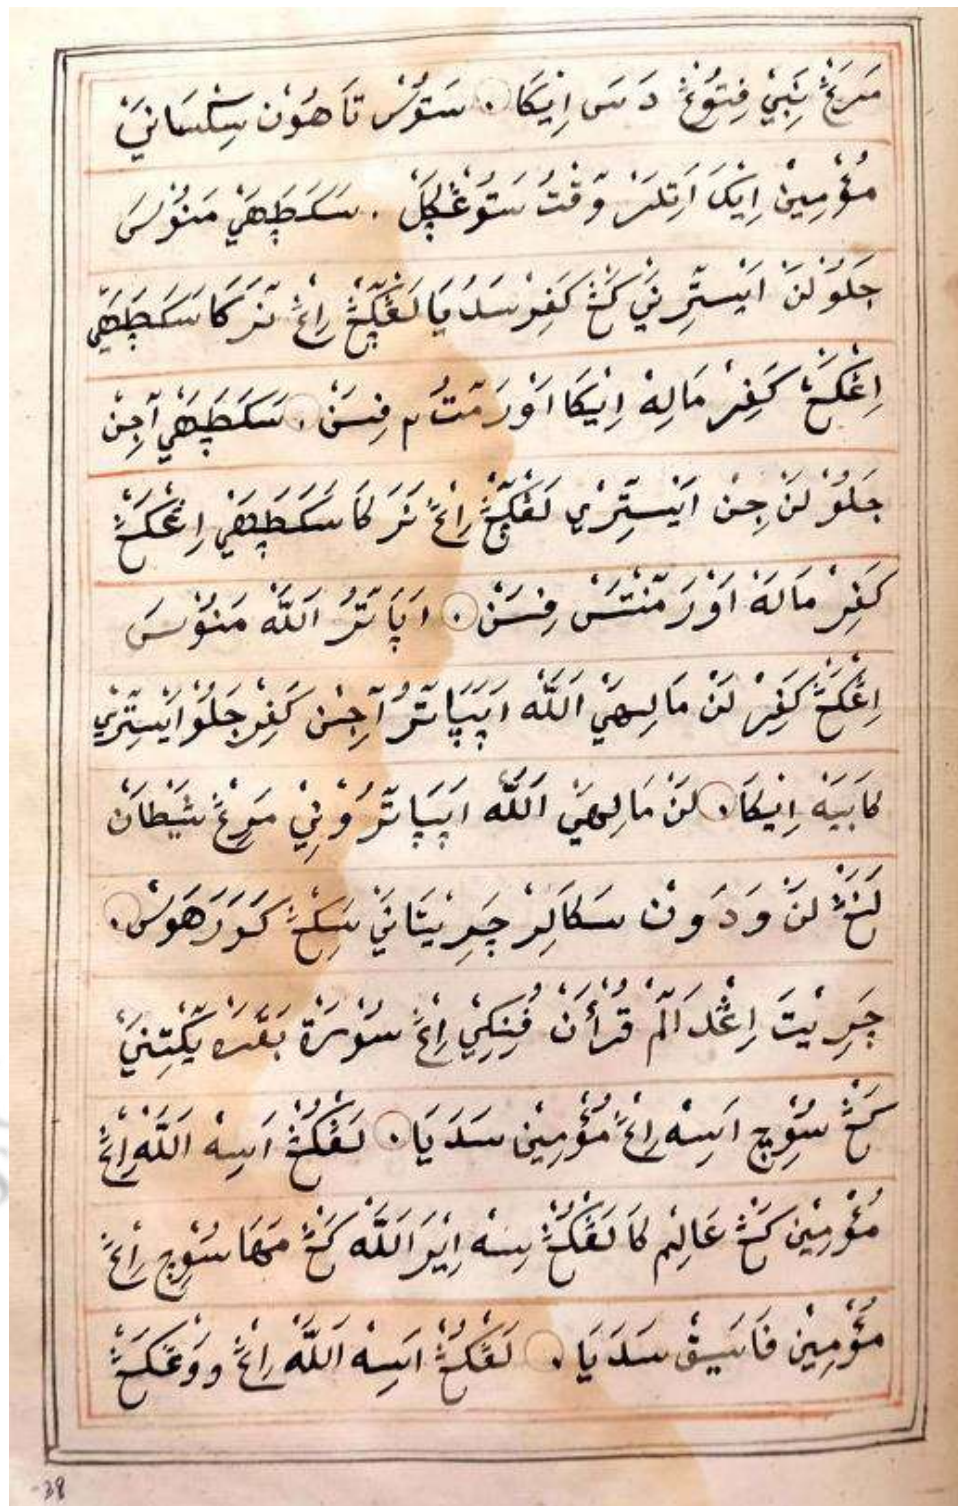 مَرَڠْ نَبِيْ فِتُوْڠْ دَسَ اِيْكَا ۰ سَتَوُسْ تَاهَوُنْ سِڪْسَانَيْ
مُؤْمِيْنْ اِيْكَ اَنِتْلَرْ وَقْتُ سَتُوْڠْڮَلْ . سَكَطَهَيْ مَنُوْسَ
جَلُوْ لَنْ اَيْسْتِرِيْنَيْ كَڠْ كَفِرْ سَدَيَا لَڠْڮَڠْ اِڠْ نَرَكَا سَكَطَهَيْ
اِڠْكَڠْ كَفِرْ مَالِهْ اِيْكَا اَوْرَ مَتُ م فِسَنْ . سَكَطَهَيْ اَجِنْ
جَلُوْ لَنْ جِنْ اَيْسْتِرِيْ لَڠْڮَڠْ اِڠْ نَرَكَا سَكَطَهَيْ اِڠْكَڠْ
كَفِرْ مَالَهْ اَوْرَ مَنْتَسْ فِسَنْ ۰ اَڽَاتَرُ اَللّٰه مَنُوْسَ
اِڠْكَڠْ كَفِرْ لَنْ مَالِهَيْ اَللّٰه اَڽَڽَاتَرُ اَجِنْ كَفِرْ جَلُوْ اَيْسْتِرِيْ
كَابَيَهْ اِيْكَا ۰ لَنْ مَالِهَيْ اَللّٰه اَڽَڽَاتَرُوْنِيْ مَرِڠْ شَيْطَانْ
لَنَڠْ لَنْ وَدَوَنْ سَكَالِرْ چَرِيْتَانَيْ سَكِڠْ كَوَرَهَوْسْ ۰
چَرِيْتَ اِڠْدَالَمْ قُرْأَنْ فُنِكِيْ اِڠْ سُوْرَةْ بَقَرَه يَكْتِنَيْ
كَڠْ سُوْچِ اَسِهْ اِڠْ مُؤْمِيْنْ سَدَيَا ۰ لَڠْكُڠْ اَسِهْ اَللّٰه اِڠْ
مُؤْمِيْنْ كَڠْ عَالِمْ كَالَڠْكُڠْ سِهْ اِيْرَ اَللّٰه كَڠْ مَهَا سُوْچِ اِڠْ
مُؤْمِيْنْ فَاسِيْقْ سَدَيَا ۰ لَڠْكُڠْ اَسِهْ اَللّٰه اِڠْ وَوْڠْكَڠْ
38